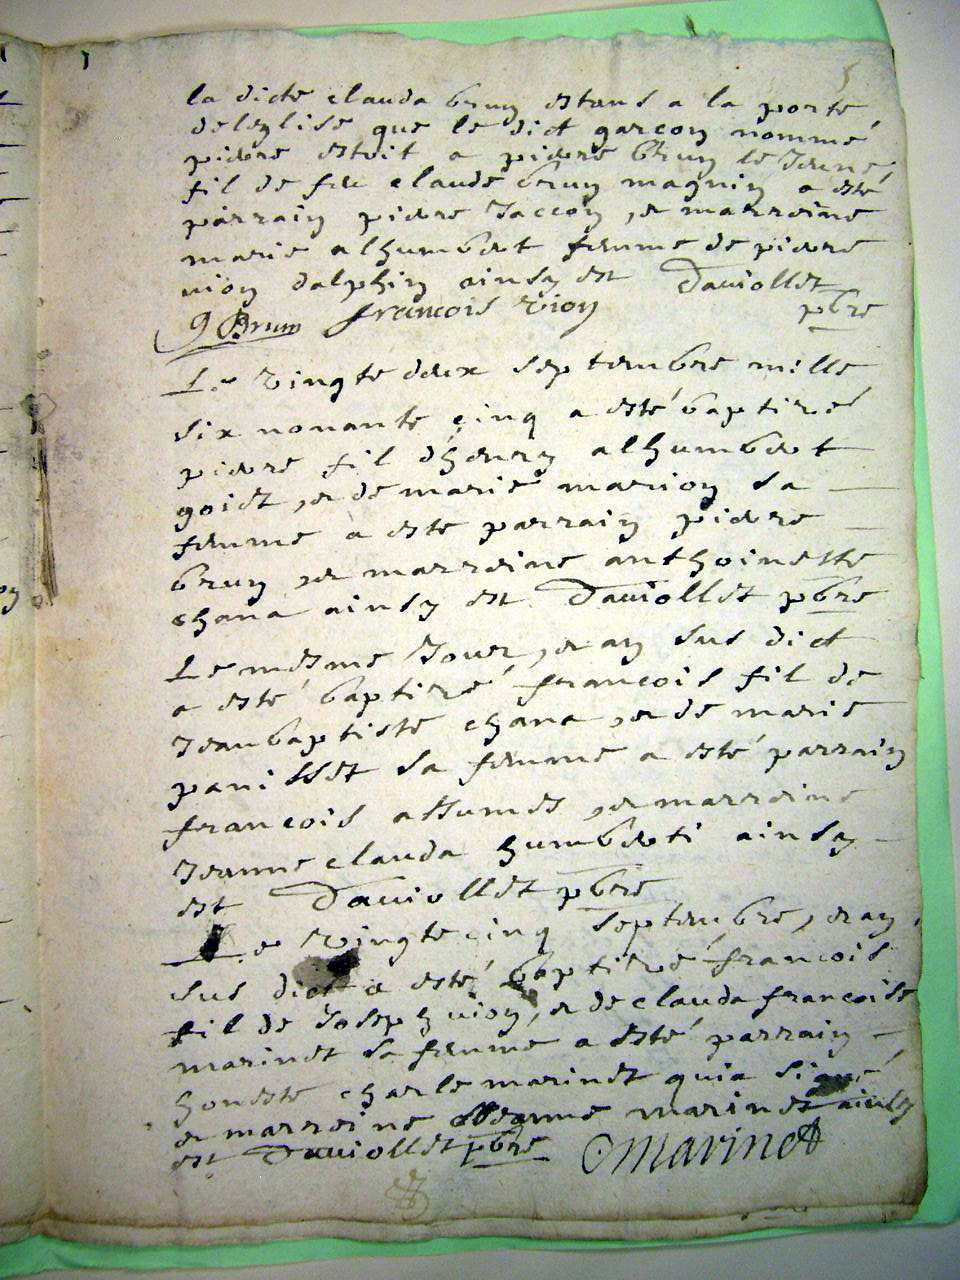 5
la dicte clauda brun estans a la porte
deleglise que le dict garcon nommé
pierre estoit a pierre brun le Jeune
fil de feu claude brun magnin a esté
parrain pierre Jaccon, et marreine
marie alhumbert femme de pierre
vion dalphin ainsy est Daviollet
pbre
Brun francois Vion
Le vingte deux septembre mille
six nonante cinq a esté baptizé
pierre fil dhenry alhumbert
goiet, et de marie marion sa
femme a esté parrain pierre
brun, et marreine anthoinette
chana ainsy est Daviollet pbre
Le mesme Jour, et an sus dict
a esté baptizé francois fil de
Jeanbaptiste chana, et de marie
panisset sa femme a esté parrain
francois, et marreine
Jeanne clauda humberti ainsy
est Daviollet pbre
Le vingtecinq septembre, et an
sus dict a esté baptizé francois
fil de Joseph vion, et de clauda francoise
marinet sa femme a esté parrain
honeste charle marinet quia signé
et marreine marinet ainsy
est Daviollet pbre Marinet